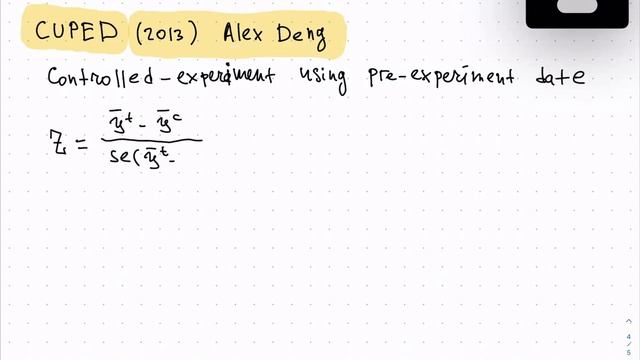 CUPED (2013) Alex Deng
Controlled-experiment using pre-experiment date
Z = (ȳᵗ - ȳᶜ) / se(ȳᵗ -
4 / 5